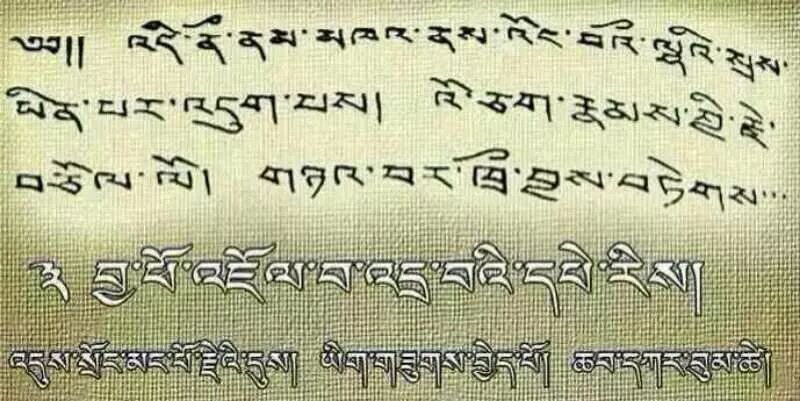 ༄༅།། འདི་ནི་ནམ་མཁའ་ནས་འོང་བའི་ལྷའི་སྲས་
ཡིན་པར་འདུག་པས། འོ་ཅག་རྣམས་ཀྱི་རྗེ་
བཅོལ་ལོ། གཉའ་བར་ཁྲི་བྱས་བཏེགས་...
༣ བྱ་ཕོ་འཇོལ་བ་འདྲ་བའི་དཔེ་རིས།
འདུས་སྲོང་མང་པོ་རྗེའི་དུས། ཡིག་གཟུགས་བྱེད་པོ། ཆབ་དཀར་བུམ་ཚེ།